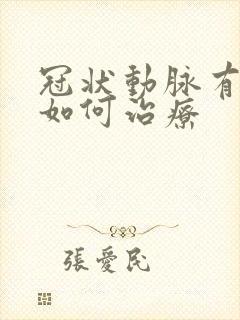 冠狀動脈有
如何治療
張愛民